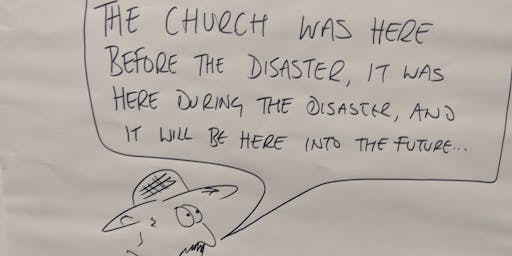 THE CHURCH WAS HERE
BEFORE THE DISASTER, IT WAS
HERE DURING THE DISASTER, AND
IT WILL BE HERE INTO THE FUTURE...